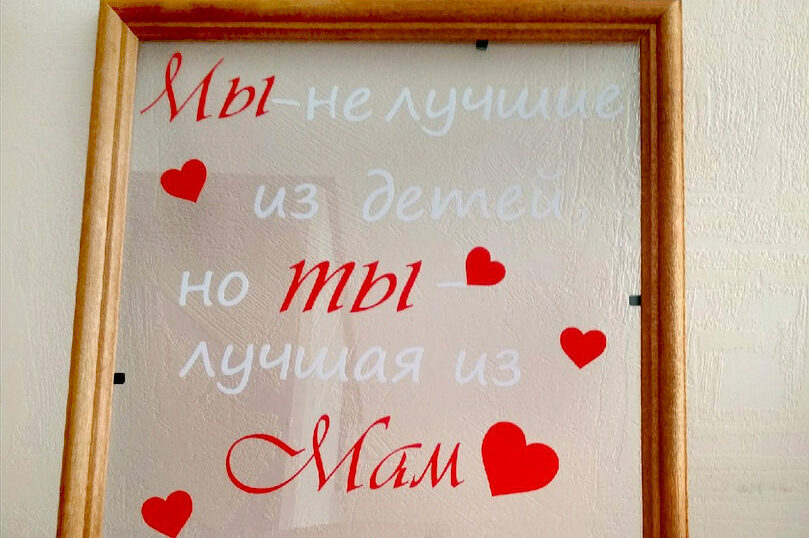 Мы-не лучшие
из детей,
но ты -
лучшая из
Мам